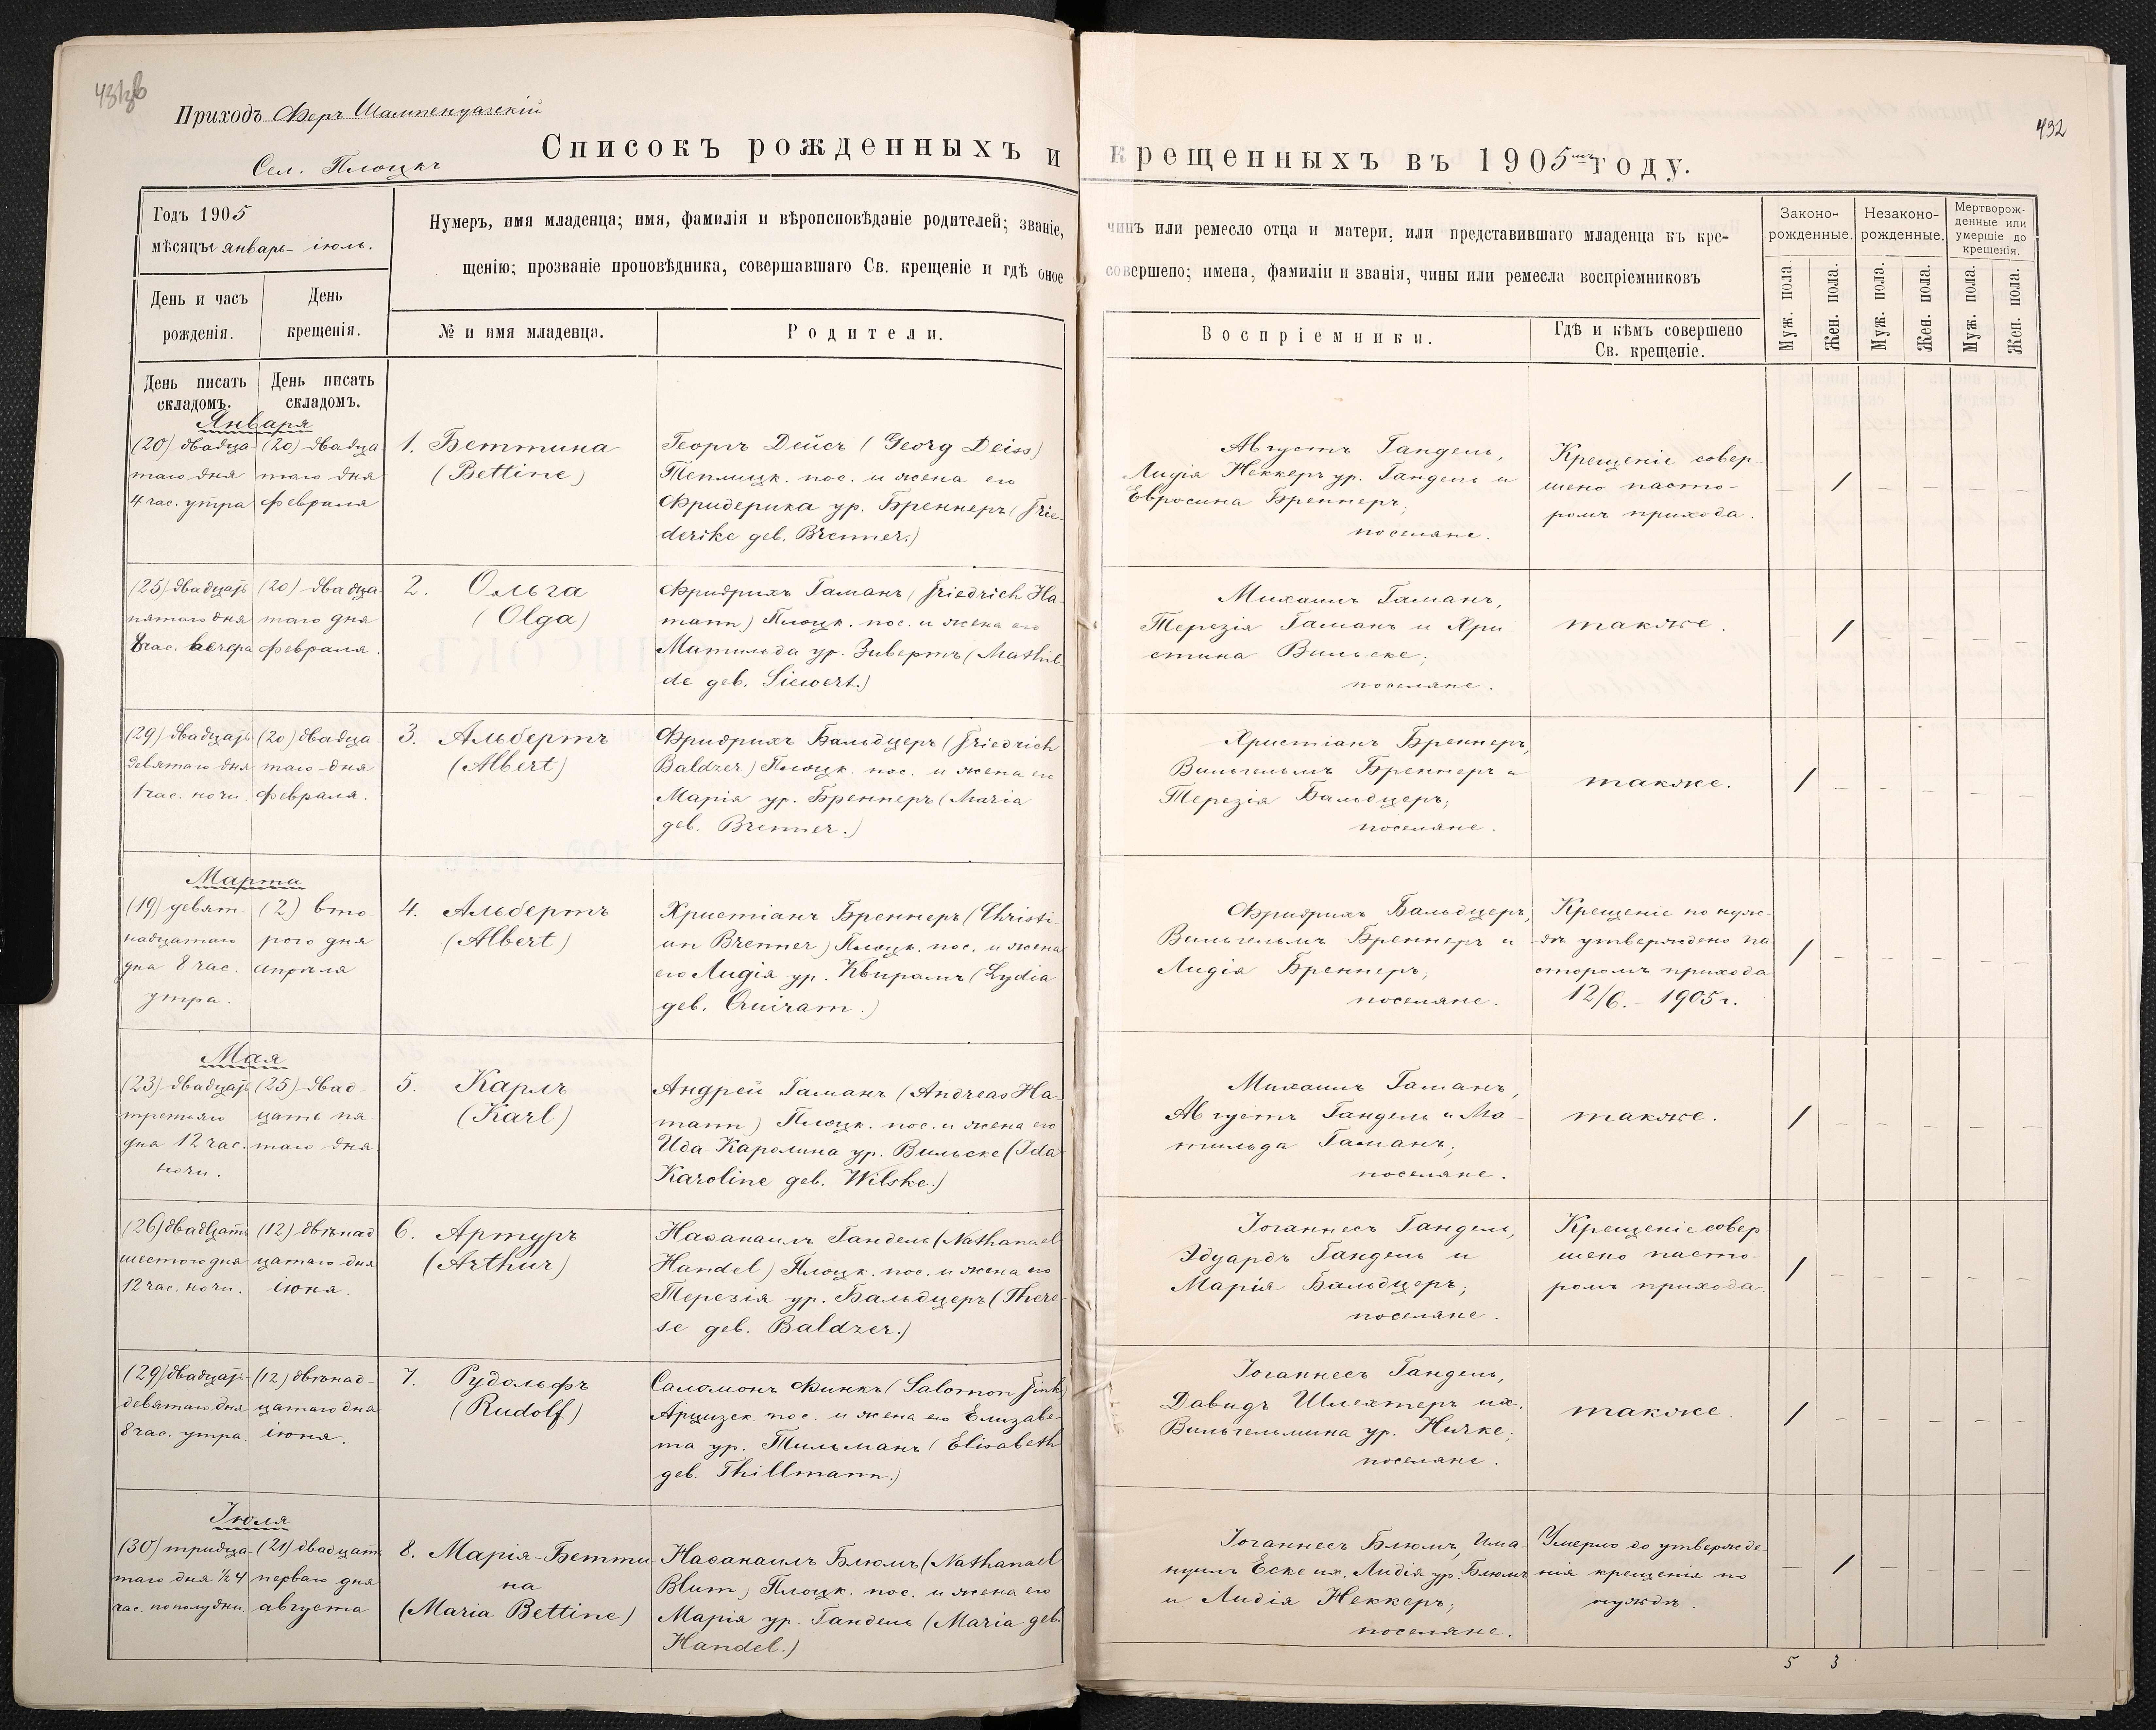 431об
Приходъ Феръ Шампенуазскій
Сел. Плоцкъ
Списокъ рожденныхъ и крещенныхъ въ 1905мъ году.
432
Годъ 1905
мѣсяцы январь - іюль.
Нумеръ, имя младенца; имя, фамилія и вѣроисповѣданіе родителей; званіе, чинъ или ремесло отца и матери, или представившаго младенца къ кре-
щенію; прозваніе проповѣдника, совершавшаго Св. крещеніе и гдѣ оное совершено; имена, фамиліи и званія, чины или ремесла воспріемниковъ
Законо-
рожденные.
Незаконо-
рожденные.
Мертворож-
денные или
умершіе до
крещенія.
День и часъ
рожденія.
День
крещенія.
№ и имя младенца.
Родители.
Воспріемники.
Гдѣ и кѣмъ совершено
Св. крещеніе.
Муж. пола.
Жен. пола.
Муж. пола.
Жен. пола.
Муж. пола.
Жен. пола.
День писать
складомъ.
День писать
складомъ.
Января
(20) двадца-
таго дня
4 час. утра
(20) двадца-
таго дня
февраля
1. Беттина
(Bettine)
Георгъ Дейсъ (Georg Deiss)
Теплицк. пос. и жена его
Фридерика ур. Бреннеръ (Frie-
derike geb. Brenner.)
Августъ Гандель,
Лидія Неккеръ ур. Гандель и
Евросина Бреннеръ;
поселяне.
Крещеніе совер-
шено пасто-
ромъ прихода.
– / – – – –
(25) двадцать
пятаго дня
8 час. вечера
(20) двадца-
таго дня
февраля.
2. Ольга
(Olga)
Фридрихъ Гаманъ (Friedrich Ha-
mann) Плоцк. пос. и жена его
Матильда ур. Зивертъ (Mathil-
de geb. Siewert.)
Михаилъ Гаманъ,
Терезія Гаманъ и Хри-
стина Вильске;
поселяне.
также.
– / – – – –
(29) двадцать
девятаго дня
1 час. ночи.
(20) двадца-
таго дня
февраля.
3. Альбертъ
(Albert)
Фридрихъ Бальдцеръ (Friedrich
Baldzer) Плоцк. пос. и жена его
Марія ур. Бреннеръ (Maria
geb. Brenner.)
Христіанъ Бреннеръ,
Вильгельмъ Бреннеръ и
Терезія Бальдцеръ;
поселяне.
также.
/ – – – – –
Марта
(19) девят-
надцатаго
дня 8 час.
утра.
(2) вто-
рого дня
апрѣля
4. Альбертъ
(Albert)
Христіанъ Бреннеръ (Christi-
an Brenner) Плоцк. пос. и жена
его Лидія ур. Квирамъ (Lydia
geb. Quiram.)
Фридрихъ Бальдцеръ,
Вильгельмъ Бреннеръ и
Лидія Бреннеръ;
поселяне.
Крещеніе по нуж-
дѣ утверждено па-
сторомъ прихода
12/6. - 1905 г.
/ – – – – –
Мая
(23) двадцать
третьяго
дня 12 час.
ночи.
(25) двад-
цать пя-
таго дня
5. Карлъ
(Karl)
Андрей Гаманъ (Andreas Ha-
mann) Плоцк. пос. и жена его
Ида-Каролина ур. Вильске (Ida
Karoline geb. Wilske.)
Михаилъ Гаманъ,
Августъ Гандель и Ма-
тильда Гаманъ;
поселяне.
также.
/ – – – – –
(26) двадцать
шестого дня
12 час. ночи.
(12) двѣнад-
цатаго дня
іюня.
6. Артуръ
(Arthur)
Наѳанаилъ Гандель (Nathanael
Handel) Плоцк. пос. и жена его
Терезія ур. Бальдцеръ (There-
se geb. Baldzer.)
Іоганнесъ Гандель,
Эдуардъ Гандель и
Марія Бальдцеръ;
поселяне.
Крещеніе совер-
шено пасто-
ромъ прихода.
/ – – – – –
(29) двадцать
девятаго дня
8 час. утра.
(12) двѣнад-
цатаго дня
іюня.
7. Рудольфъ
(Rudolf)
Саломонъ Финкъ (Salomon Fink)
Арцизск. пос. и жена его Елизабе-
та ур. Тильманъ (Elisabeth
geb. Thillmann.)
Іоганнесъ Гандель,
Давидъ Шлехтеръ иж.
Вильгельмина ур. Ничке;
поселяне.
также.
/ – – – – –
Іюля
(30) тридца-
таго дня ½4
час. пополудни.
(21) двадцать
перваго дня
августа
8. Марія-Бетти-
на
(Maria Bettine)
Наѳанаилъ Блюмъ (Nathanael
Blum) Плоцк. пос. и жена его
Марія ур. Гандель (Maria geb.
Handel.)
Іоганнесъ Блюмъ, Има-
нуилъ Еске иж. Лидія ур. Блюмъ
и Лидія Неккеръ;
поселяне.
Умерло до утвержде-
нія крещенія по
нуждѣ.
– / – – – –
5 3